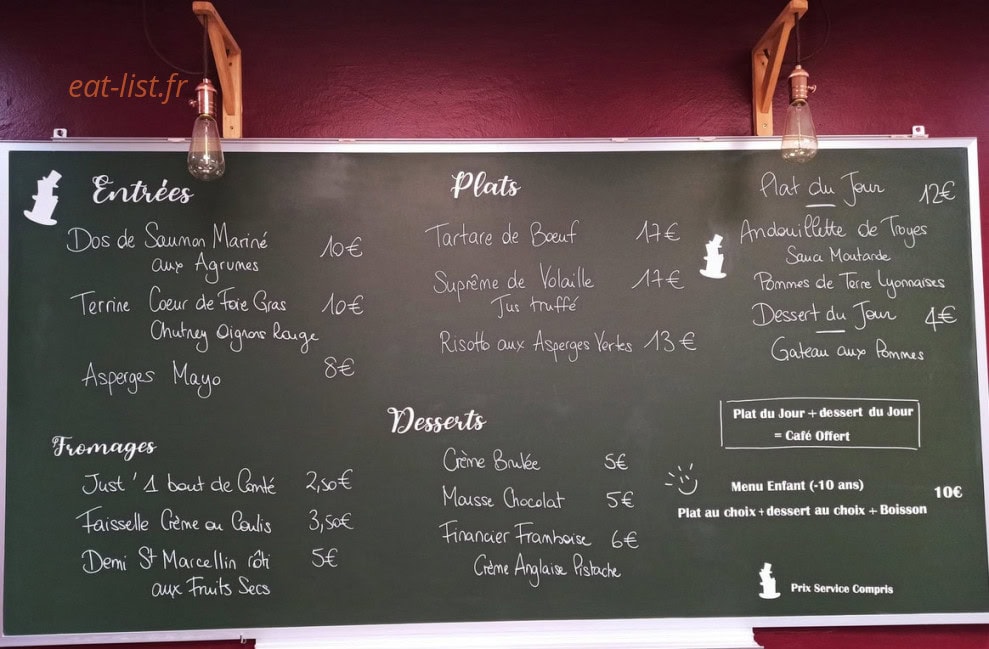 eat-list.fr
Entrées
Dos de Saumon Mariné 10€
aux Agrumes
Terrine Coeur de Foie Gras 10€
Chutney Oignons Rouge
Asperges Mayo 8€
Fromages
Just' 1 bout de Comté 2,50€
Faisselle Crème ou Coulis 3,50€
Demi St Marcellin rôti 5€
aux Fruits Secs
Plats
Tartare de Bœuf 17€
Suprême de Volaille 17€
Jus truffé
Risotto aux Asperges Vertes 13€
Desserts
Crème Brulée 5€
Mousse Chocolat 5€
Financier Framboise 6€
Crème Anglaise Pistache
Plat du Jour 12€
Andouillette de Troyes
Sauce Moutarde
Pommes de Terre Lyonnaises
Dessert du Jour 4€
Gateau aux Pommes
Plat du Jour + dessert du Jour
= Café Offert
Menu Enfant (-10 ans) 10€
Plat au choix + dessert au choix + Boisson
Prix Service Compris